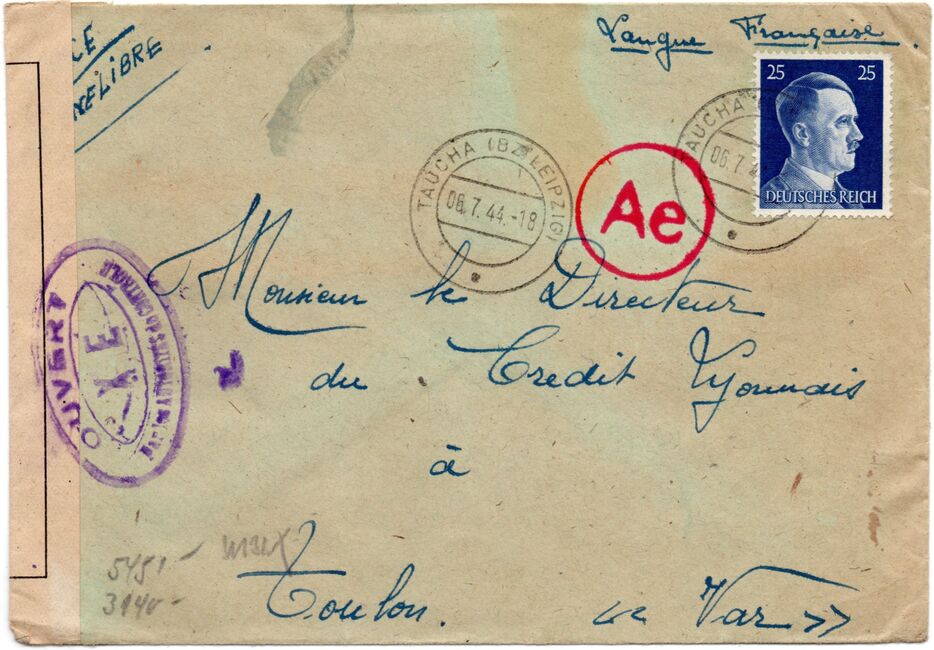 CE
NCE LIBRE
Langue Française.
25 25
DEUTSCHES REICH
TAUCHA (BZ LEIPZIG)
06.7.44.-18
TAUCHA
06.7.4
Ae
Monsieur le Directeur
du Credit Lyonnais
à
Toulon. << Var >>
OUVERT
YE
5451 -
3140 -